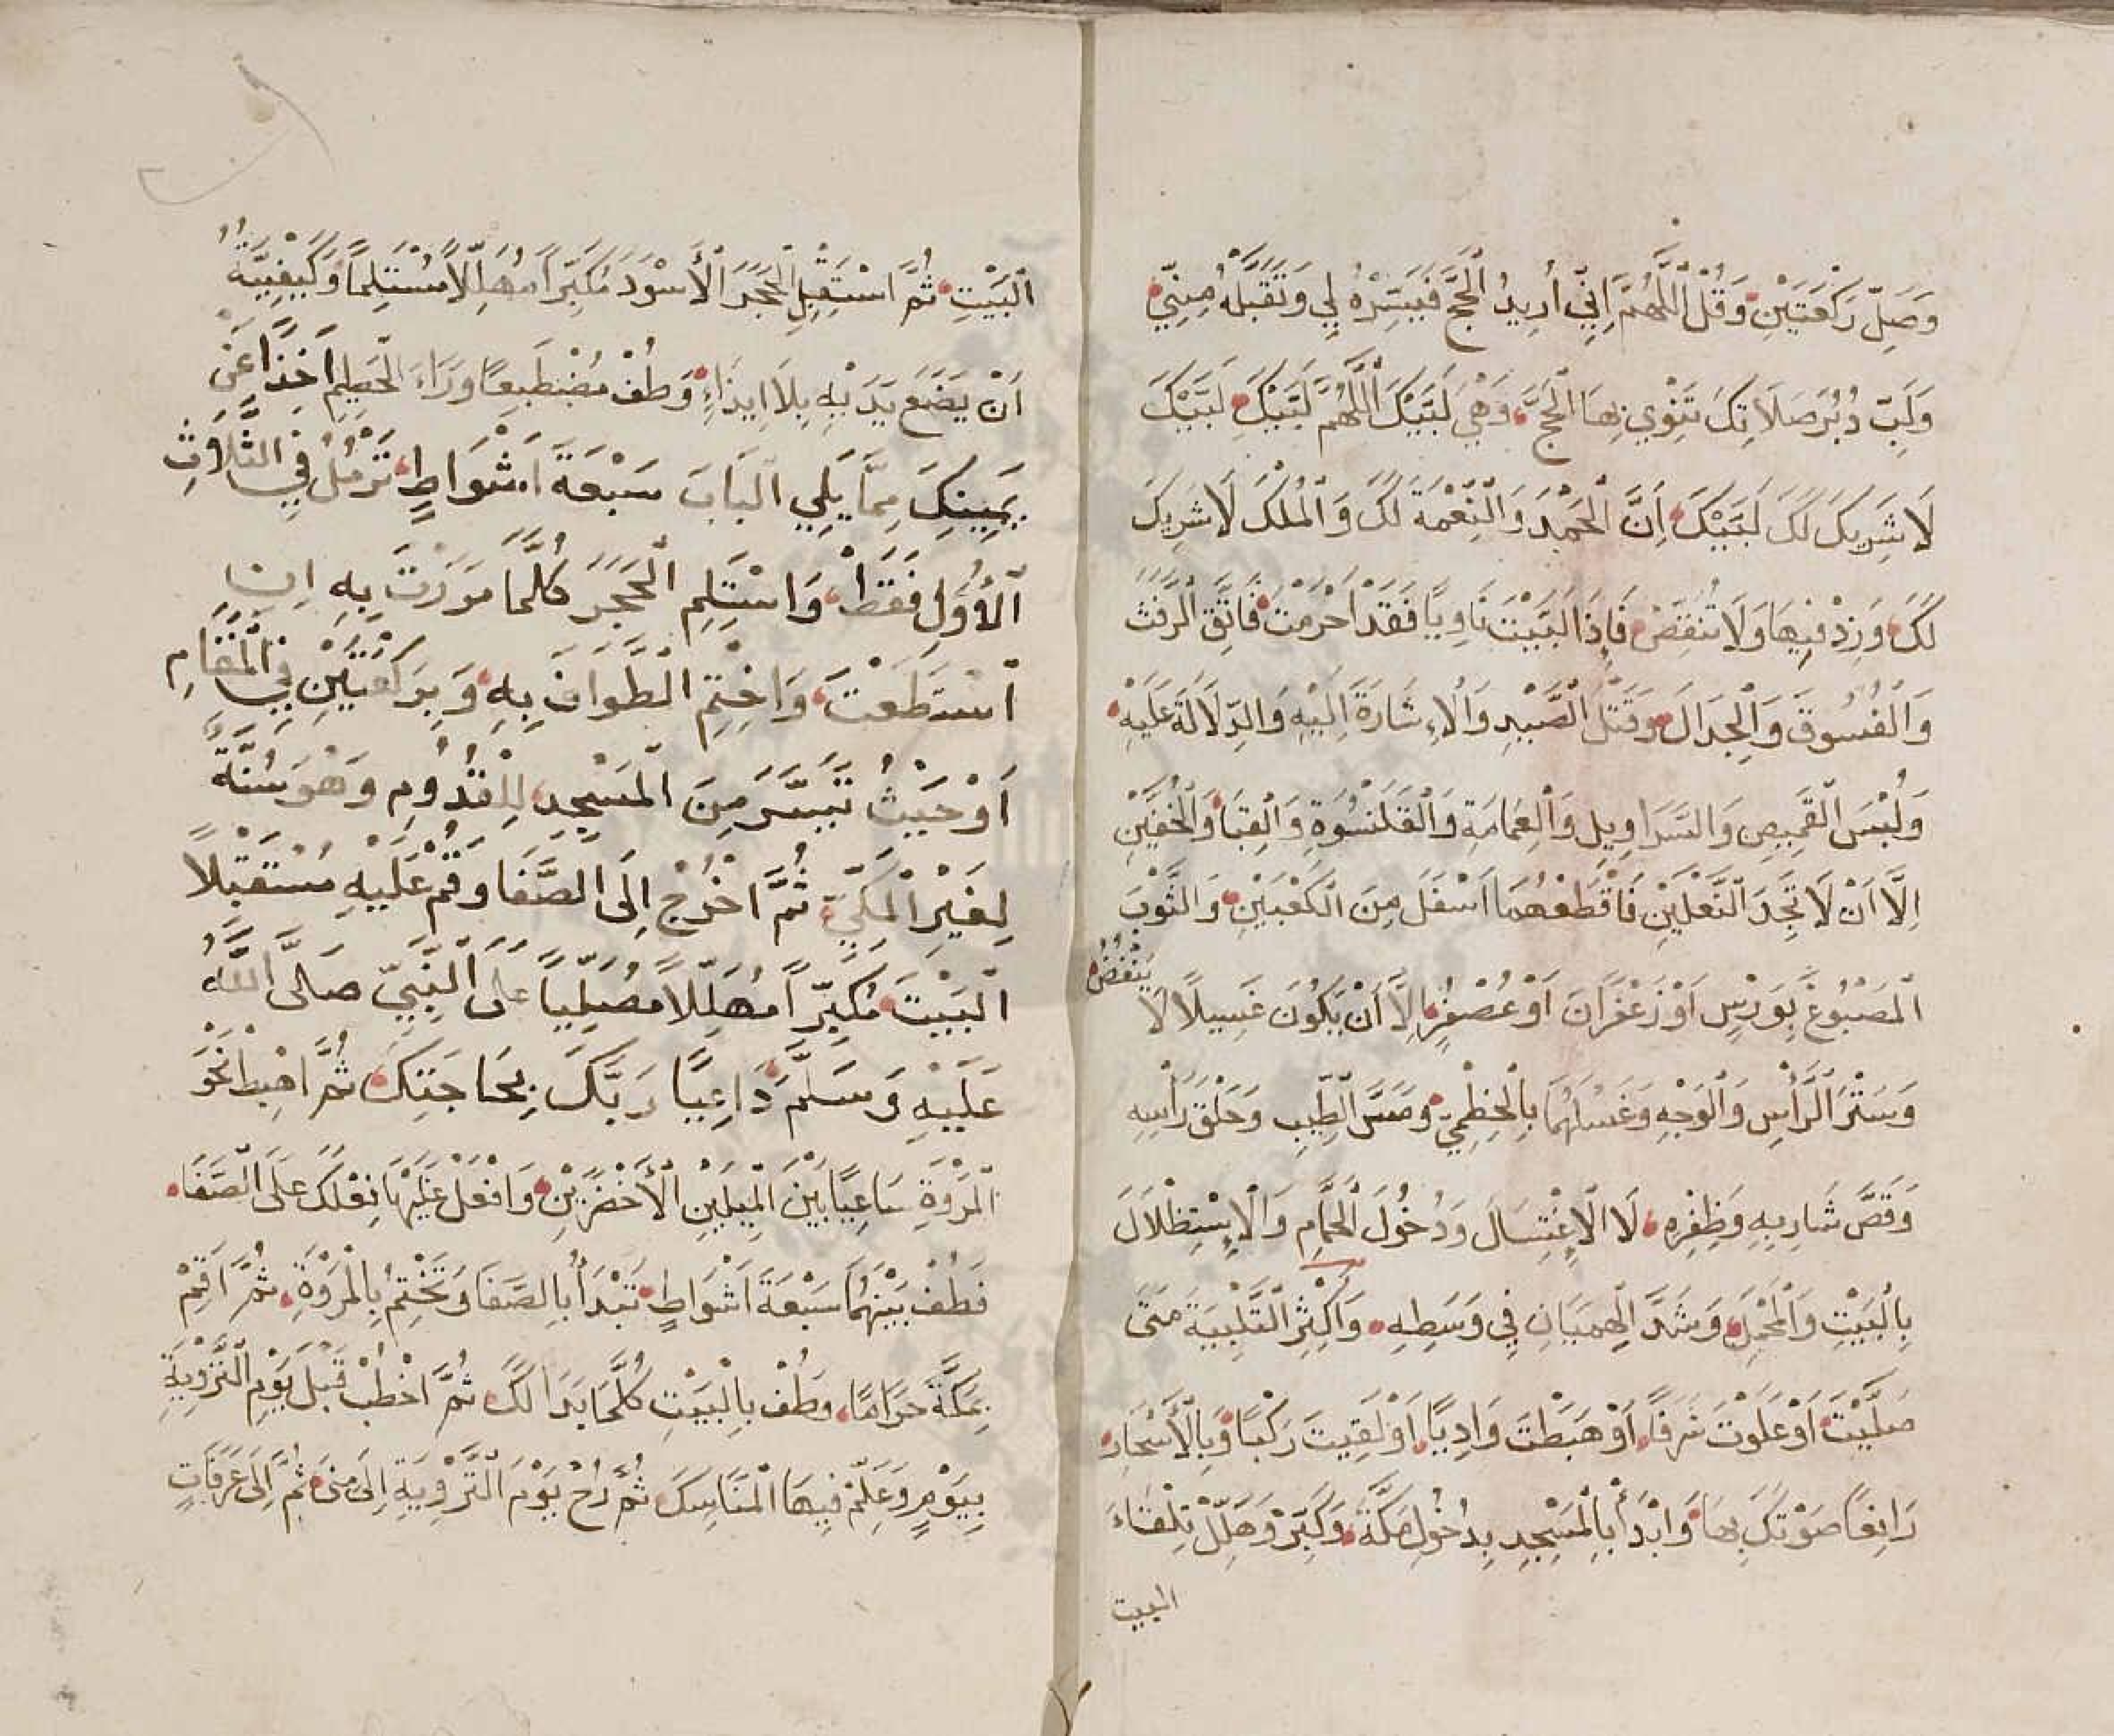 وَصَلِّ رَكْعَتَيْنِ وَقُلْ اَللَّهُمَّ اِنِّي أُرِيدُ الْحَجَّ فَيَسِّرْهُ لِي وَتَقَبَّلْهُ مِنِّي
وَلَبِّ دُبُرَ صَلَاتِكَ تَنْوِي بِهَا الْحَجَّ وَهِيَ لَبَّيْكَ اَللَّهُمَّ لَبَّيْكَ لَبَّيْكَ
لَا شَرِيكَ لَكَ لَبَّيْكَ اِنَّ الْحَمْدَ وَالنِّعْمَةَ لَكَ وَالْمُلْكَ لَا شَرِيكَ
لَكَ وَزِدْ فِيهَا وَلَا تُنْقِصْ فَإِذَا لَبَّيْتَ نَاوِيًا فَقَدْ اَحْرَمْتَ فَاتَّقِ الرَّفَثَ
وَالْفُسُوقَ وَالْجِدَالَ وَقَتْلَ الصَّيْدِ وَالْاِشَارَةَ اِلَيْهِ وَالدِّلَالَةَ عَلَيْهِ
وَلُبْسَ الْقَمِيصِ وَالسَّرَاوِيلِ وَالْعِمَامَةِ وَالْقَلَنْسُوَةِ وَالْقِبَا وَالْخُفَّيْنِ
اِلَّا اَنْ لَا تَجِدَ النَّعْلَيْنِ فَاقْطَعْهُمَا اَسْفَلَ مِنَ الْكَعْبَيْنِ وَالثَّوْبَ
الْمَصْبُوغَ بِوَرْسٍ اَوْ زَعْفَرَانَ اَوْ عُصْفُرٍ اِلَّا اَنْ يَكُونَ غَسِيلًا لَا يَنْفُضُ
وَسَتْرَ الرَّأْسِ وَالْوَجْهِ وَغَسْلَهُمَا بِالْخِطْمِيِّ وَمَسَّ الطِّيبِ وَحَلْقَ رَأْسِهِ
وَقَصَّ شَارِبِهِ وَظِفْرِهِ لَا الْاِغْتِسَالَ وَدُخُولَ الْحَمَّامِ وَالْاِسْتِظْلَالَ
بِالْبَيْتِ وَالْمَحْمِلِ وَشَدَّ الْهِمْيَانِ فِي وَسَطِهِ وَاَكْثِرِ التَّلْبِيَةَ مَتَى
صَلَّيْتَ اَوْ عَلَوْتَ شَرَفًا اَوْ هَبَطْتَ وَادِيًا اَوْ لَقِيتَ رَكْبًا وَبِالْأَسْحَارِ
رَافِعًا صَوْتَكَ بِهَا وَابْدَأْ بِالْمَسْجِدِ بِدُخُولِ مَكَّةَ وَكَبِّرْ وَهَلِّلْ تِلْقَاءَ
البيت
الْبَيْتِ ثُمَّ اسْتَقْبِلِ الْحَجَرَ الْأَسْوَدَ مُكَبِّرًا مُهَلِّلًا مُسْتَلِمًا وَكَيْفِيَّتُهُ
اَنْ يَضَعَ يَدَيْهِ بِلَا اِيذَاءٍ وَطُفْ مُضْطَبِعًا وَرَاءَ الْحَطِيمِ اٰخِذًا عَنْ
يَمِينِكَ مِمَّا يَلِي الْبَابَ سَبْعَةَ اَشْوَاطٍ تَرْمُلُ فِي الثَّلَاثِ
الْأُوَلِ فَقَطْ وَاسْتَلِمِ الْحَجَرَ كُلَّمَا مَرَرْتَ بِهِ اِنِ
اسْتَطَعْتَ وَاخْتِمِ الطَّوَافَ بِهِ وَبِرَكْعَتَيْنِ فِي الْمَقَامِ
اَوْ حَيْثُ تَيَسَّرَ مِنَ الْمَسْجِدِ لِلْقُدُومِ وَهُوَ سُنَّةٌ
لِغَيْرِ الْمَكِّيِّ ثُمَّ اخْرُجْ اِلَى الصَّفَا وَقُمْ عَلَيْهِ مُسْتَقْبِلًا
الْبَيْتَ مُكَبِّرًا مُهَلِّلًا مُصَلِّيًا عَلَى النَّبِيِّ صَلَّى اللَّهُ
عَلَيْهِ وَسَلَّمَ دَاعِيًا رَبَّكَ بِحَاجَتِكَ ثُمَّ اهْبِطْ نَحْوَ
الْمَرْوَةِ سَاعِيًا بَيْنَ الْمِيلَيْنِ الْأَخْضَرَيْنِ وَافْعَلْ عَلَيْهَا فِعْلَكَ عَلَى الصَّفَا
فَطُفْ بَيْنَهُمَا سَبْعَةَ اَشْوَاطٍ تَبْدَأُ بِالصَّفَا وَتَخْتِمُ بِالْمَرْوَةِ ثُمَّ اَقِمْ
بِمَكَّةَ حَرَامًا وَطُفْ بِالْبَيْتِ كُلَّمَا بَدَا لَكَ ثُمَّ اخْطُبْ قَبْلَ يَوْمِ التَّرْوِيَةِ
بِيَوْمٍ وَعَلِّمْ فِيهَا الْمَنَاسِكَ ثُمَّ رُحْ يَوْمَ التَّرْوِيَةِ اِلَى مِنًى ثُمَّ اِلَى عَرَفَاتٍ